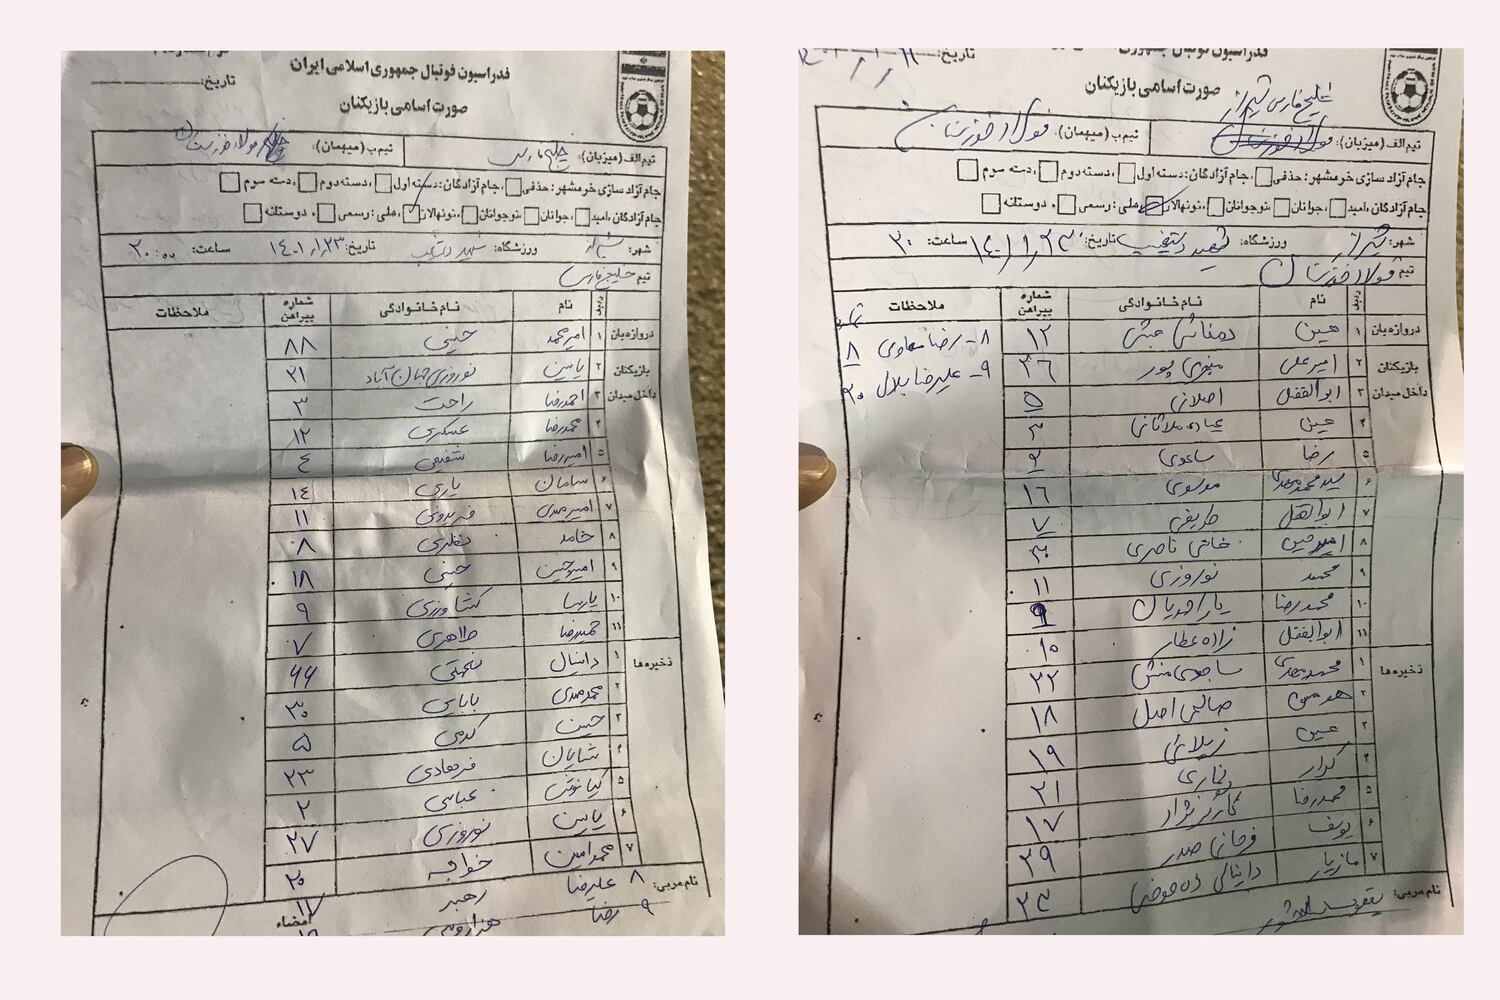 فدراسیون فوتبال جمهوری اسلامی ایران
تاریخ:
صورت اسامی بازیکنان
تیم الف (میزبان): خلیج فارس تیم ب (میهمان): فولاد خوزستان
جام آزاد سازی خرمشهر: حذفی ،جام آزادگان: دسته اول ،دسته دوم ،دسته سوم
جام آزادگان ،امید ،جوانان ،نوجوانان ،نونهالان ،ملی: رسمی ، دوستانه
شهر: شیراز ورزشگاه: شهید دستغیب تاریخ: ۱۴۰۱/۱/۲۳ ساعت: ۲۰:۰۰
تیم خلیج فارس
ردیف نام نام خانوادگی شماره پیراهن ملاحظات
دروازه بان ۱ امیرمحمد حسنی ۸۸
بازیکنان ۲ یاسین نوروزی ۲۱
داخل میدان ۳ احمدرضا راحت ۳
۴ محمدرضا عسکری ۱۲
۵ امیررضا شفیعی ٤
۶ سامان یاری ۱٤
۷ امیرمهدی فریدونی ۱۱
۸ حامد ۸
۹ امیرحسین حسنی ۱۸
۱۰ پارسا کشاورزی ۹
۱۱ حمیدرضا طاهری ۷
ذخیره ها ۱ دانیال ۶۶
۲ محمدمهدی بابایی ۳۰
۳ حسین کرمی ۵
۴ شایان فرهادی ۲۳
۵ کیانوش عباسی ۲
۶ یاسین نوروزی ۲۷
۷ محمدامین خواجه ۲۰
نام مربی: ۸ علیرضا رهبر ۱۷
۹ رضا امضاء
تاریخ:
فدراسیون فوتبال جمهوری
صورت اسامی بازیکنان
خلیج فارس شیراز
تیم الف (میزبان): فولاد خوزستان تیم ب (میهمان): فولاد خوزستان
جام آزاد سازی خرمشهر: حذفی ،جام آزادگان: دسته اول ،دسته دوم ،دسته سوم
جام آزادگان ،امید ،جوانان ،نوجوانان ،نونهالان ،ملی: رسمی ، دوستانه
شهر: شیراز ورزشگاه: شهید دستغیب تاریخ: ۱۴۰۱/۱/۲۳ ساعت: ۲۰
تیم فولاد خوزستان
ردیف نام نام خانوادگی شماره پیراهن ملاحظات
دروازه بان ۱ حسین دهقانی منش ۱۲ ۸- رضا سهاوی ۸
بازیکنان ۲ امیرعلی منیری پور ۳۶ ۹- علیرضا بلال ۲۰
داخل میدان ۳ ابوالفضل اصلانی ۵
۴ حسین عباده ملاثانی ۳
۵ رضا ساعدی ۲
۶ سیدمحمدمهدی موسوی ۱۶
۷ ابوالفضل ظریفی ۷
۸ امیرحسین خانی ناصری ۳۰
۹ محمد نوروزی ۱۱
۱۰ محمدرضا یاراحمدیان ۹
۱۱ ابوالفضل زاده عطار ۱۰
ذخیره ها ۱ محمدمهدی ساجدی منش ۲۲
۲ هومن صالحی اصل ۱۸
۳ حسین زیلائی ۱۹
۴ کرار ۲۱
۵ محمدرضا ۱۷
۶ یوسف فرحانی صدر ۲۹
۷ مازیار دانیالی ده حوضی ۲۳
نام مربی: